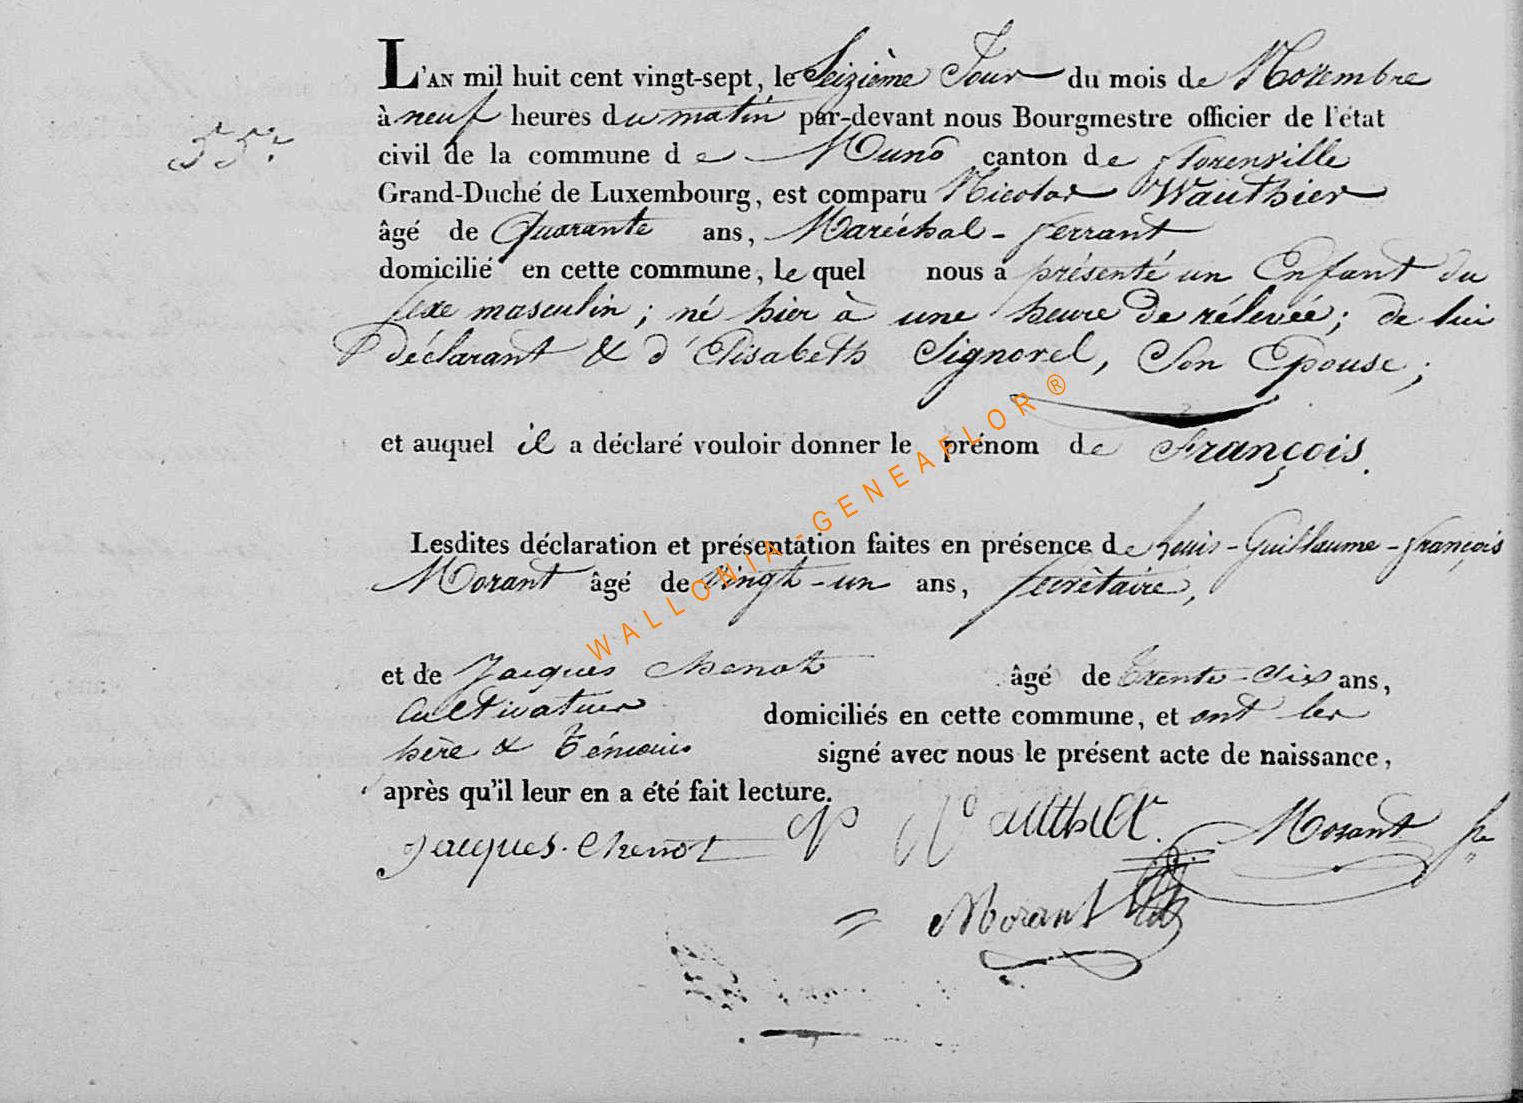 L'AN mil huit cent vingt-sept, le Seizième Jour du mois de Novembre
à neuf heures du matin par-devant nous Bourgmestre officier de l'état
55.
civil de la commune de Muno canton de florenville
Grand-Duché de Luxembourg, est comparu Nicolas Wauthier
âgé de Quarante ans, Maréchal-ferrant
domicilié en cette commune, le quel nous a présenté un Enfant du
sexe masculin; né hier à une heure de rélevée; de lui
déclarant & d'Elisabeth Signorel, Son Epouse;
et auquel il a déclaré vouloir donner le prénom de François.
Lesdites déclaration et présentation faites en présence de Louis-Guillaume-françois
Morant âgé de vingt-un ans, secrètaire,
et de Jacques Chenot âgé de trente-dix ans,
Cultivateur domiciliés en cette commune, et ont les
père & témoins signé avec nous le présent acte de naissance,
après qu'il leur en a été fait lecture.
Jacques. Chenot Wauthier. Morant
Morant
WALLONIA-GENEAFLOR®